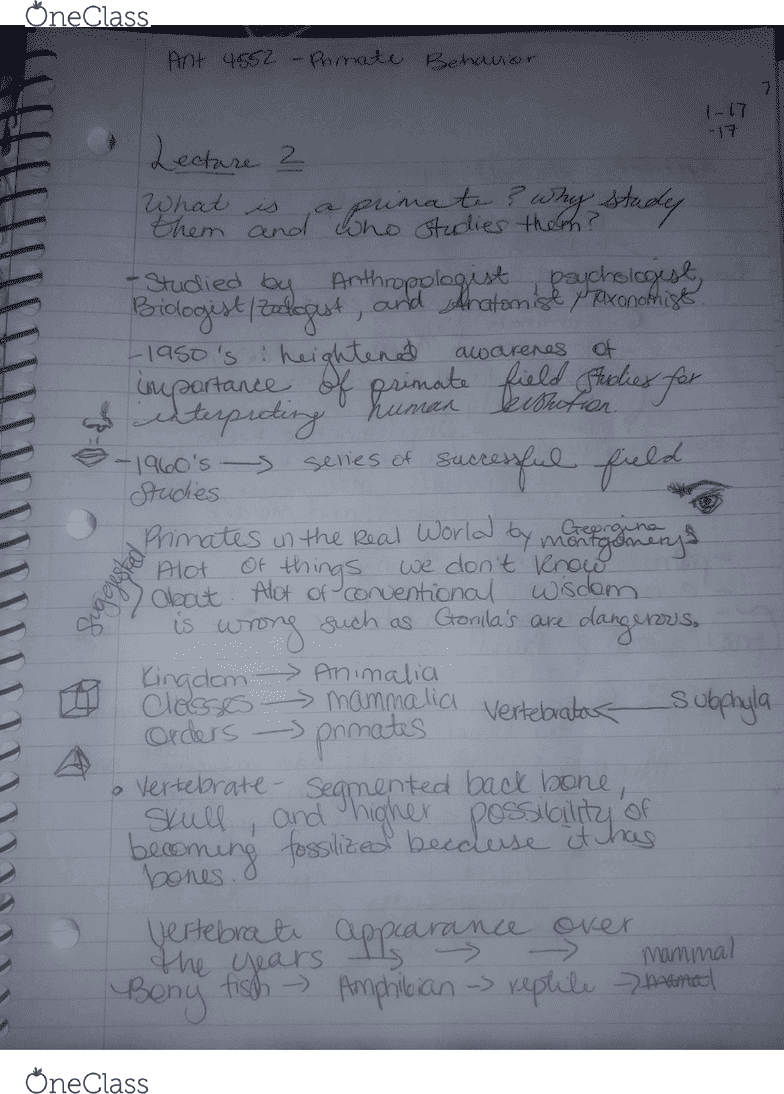 OneClass
Ant 4552 - Primate Behavior
7
1-17
-17
Lecture 2
What is a primate? why study
them and who studies them?
- Studied by Anthropologist, psychologist,
Biologist/Zoologist, and Anatomist/Taxonomist.
- 1950's : heightened awarenes of
importance of primate field studies for
interpreting human evolution.
- 1960's → series of successful field
studies
Primates in the Real World by Georgina Montgomery
Suggested
Alot of things we don't know
about. Alot of conventional wisdom
is wrong such as Gorilla's are dangerous.
Kingdom → Animalia
Classes → mammalia Vertebrata ← Subphyla
Orders → primates
• Vertebrate - segmented back bone,
skull, and higher possibility of
becoming fossilized because it has
bones.
Vertebrate appearance over
the years → → →
Bony fish → Amphibian → reptile → mammal
OneClass